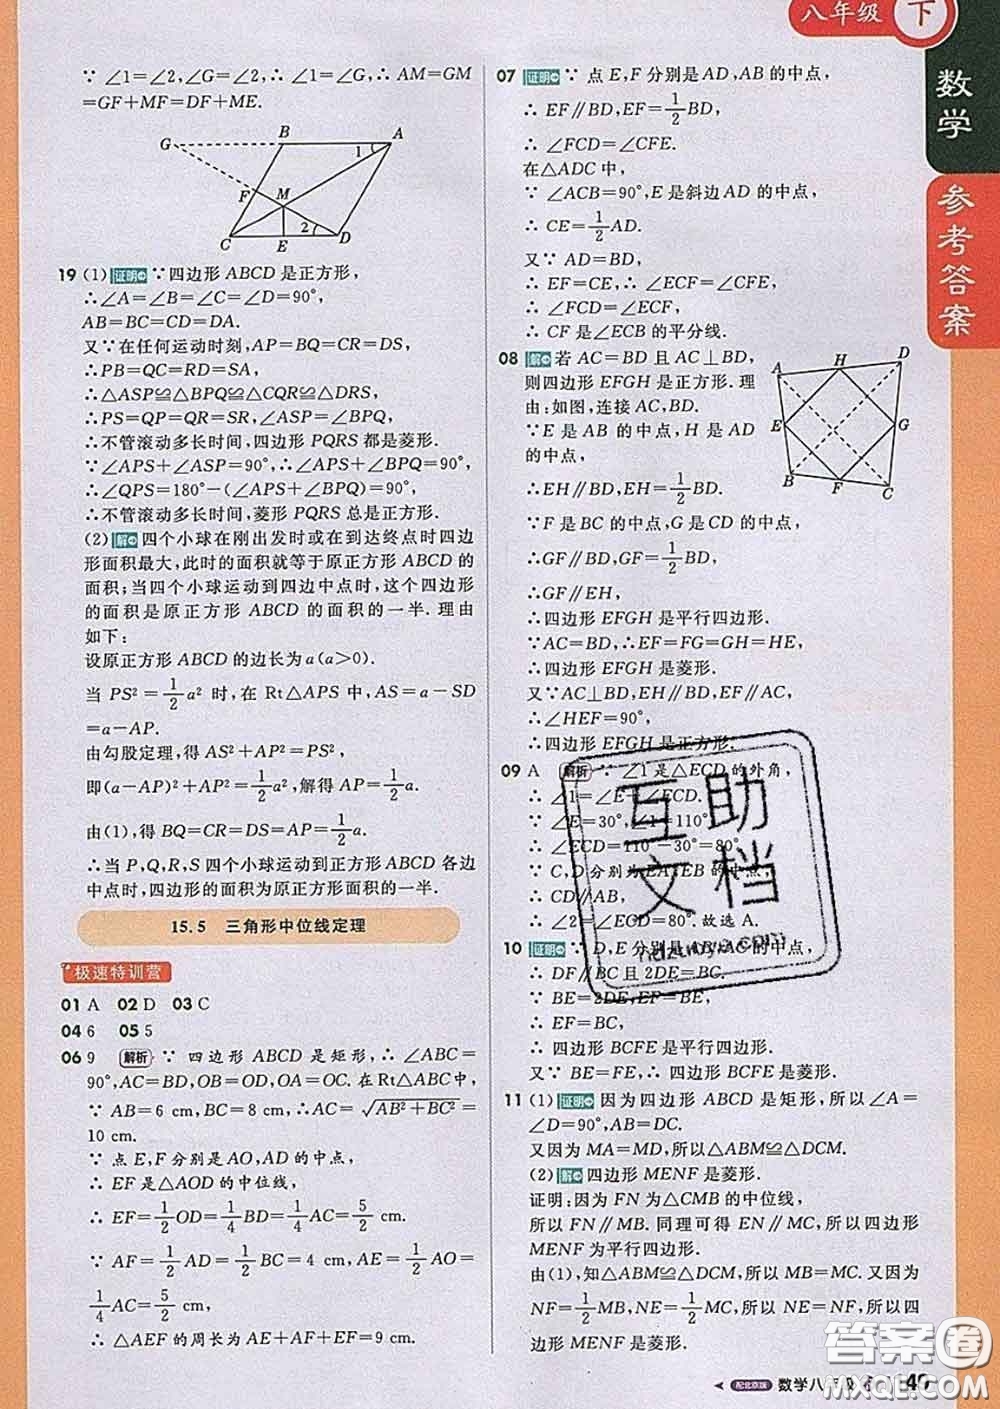 八年级 下
数学
参考答案
∵ ∠1=∠2,∠G=∠2,∴ ∠1=∠G,∴ AM=GM
=GF+MF=DF+ME.
G B A 1 F M 2 C E D
19 (1)证明 ∵四边形 ABCD 是正方形,
∴∠A=∠B=∠C=∠D=90°,
AB=BC=CD=DA.
又∵在任何运动时刻,AP=BQ=CR=DS,
∴PB=QC=RD=SA,
∴△ASP≌△BPQ≌△CQR≌△DRS,
∴PS=QP=QR=SR,∠ASP=∠BPQ,
∴不管滚动多长时间,四边形 PQRS 都是菱形.
∵∠APS+∠ASP=90°,∴∠APS+∠BPQ=90°,
∴∠QPS=180°-(∠APS+∠BPQ)=90°,
∴不管滚动多长时间,菱形 PQRS 总是正方形.
(2)解 四个小球在刚出发时或在到达终点时四边
形面积最大,此时的面积就等于原正方形 ABCD 的
面积;当四个小球运动到四边中点时,这个四边形
的面积是原正方形 ABCD 的面积的一半. 理由
如下:
设原正方形 ABCD 的边长为 a(a>0).
当 PS²=1/2a² 时,在 Rt△APS 中,AS=a-SD
=a-AP.
由勾股定理,得 AS²+AP²=PS²,
即(a-AP)²+AP²=1/2a²,解得 AP=1/2a.
由(1),得 BQ=CR=DS=AP=1/2a.
∴当 P,Q,R,S 四个小球运动到正方形 ABCD 各边
中点时,四边形的面积为原正方形面积的一半.
15.5 三角形中位线定理
极速特训营
01 A 02 D 03 C
04 6 05 5
06 9 解析 ∵ 四边形 ABCD 是矩形,∴ ∠ABC=
90°,AC=BD,OB=OD,OA=OC. 在 Rt△ABC 中,
∵ AB=6 cm,BC=8 cm,∴ AC=√(AB²+BC²)=
10 cm.
∵ 点 E,F 分别是 AO,AD 的中点,
∴ EF 是△AOD 的中位线,
∴ EF=1/2OD=1/4BD=1/4AC=5/2 cm.
∵ AF=1/2AD=1/2BC=4 cm,AE=1/2AO=
1/4AC=5/2 cm,
∴ △AEF 的周长为 AE+AF+EF=9 cm.
07 证明 ∵ 点 E,F 分别是 AD,AB 的中点,
∴ EF∥BD,EF=1/2BD,
∴ ∠FCD=∠CFE.
在△ADC 中,
∵ ∠ACB=90°,E 是斜边 AD 的中点,
∴ CE=1/2AD.
又∵ AD=BD,
∴ EF=CE,∴ ∠ECF=∠CFE,
∴ ∠FCD=∠ECF,
∴ CF 是∠ECB 的平分线.
08 解 若 AC=BD 且 AC⊥BD,
则四边形 EFGH 是正方形. 理
由:如图,连接 AC,BD.
∵E 是 AB 的中点,H 是 AD
的中点,
A H D E G B F C
∴EH∥BD,EH=1/2BD.
∵F 是 BC 的中点,G 是 CD 的中点,
∴GF∥BD,GF=1/2BD,
∴GF∥EH,
∴四边形 EFGH 是平行四边形.
∵AC=BD,∴EF=FG=GH=HE,
∴四边形 EFGH 是菱形.
又∵AC⊥BD,EH∥BD,EF∥AC,
∴∠HEF=90°,
∴四边形 EFGH 是正方形.
09 A 解析 ∵ ∠1 是△ECD 的外角,
∴ ∠1=∠E+∠ECD.
∵ ∠E=30°,∠1=110°,
∴ ∠ECD=110°-30°=80°.
∵ C,D 分别为 EA,EB 的中点,
∴ CD∥AB,
∴ ∠2=∠ECD=80°. 故选 A.
10 证明 ∵ D,E 分别是 AB,AC 的中点,
∴ DF∥BC 且 2DE=BC.
∵ BE=2DE,EF=BE,
∴ EF=BC,
∴ 四边形 BCFE 是平行四边形.
又∵ BE=FE,∴ 四边形 BCFE 是菱形.
11 (1)证明 因为四边形 ABCD 是矩形,所以∠A=
∠D=90°,AB=DC.
又因为 MA=MD,所以△ABM≌△DCM.
(2)解 四边形 MENF 是菱形.
证明:因为 FN 为△CMB 的中位线,
所以 FN∥MB. 同理可得 EN∥MC,所以四边形
MENF 为平行四边形.
由(1),知△ABM≌△DCM,所以 MB=MC. 又因为
NF=1/2MB,NE=1/2MC,所以 NE=NF,所以四
边形 MENF 是菱形.
互助
文档
答案卷
配北京版 数学八年级